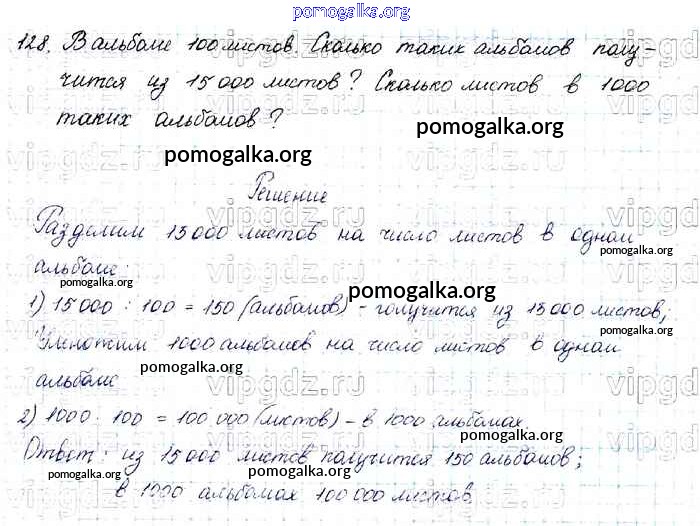 pomogalka.org
128. В альбоме 100 листов. Сколько таких альбомов полу-
чится из 15 000 листов? Сколько листов в 1000
таких альбомов?
pomogalka.org
pomogalka.org
Решение
Разделим 15 000 листов на число листов в одном
альбоме:
pomogalka.org
pomogalka.org
pomogalka.org
1) 15 000 : 100 = 150 (альбомов) - получится из 15 000 листов;
pomogalka.org
Умножим 1000 альбомов на число листов в одном
альбоме
pomogalka.org
pomogalka.org
2) 1000 · 100 = 100 000 (листов) - в 1000 альбомах.
Ответ: из 15 000 листов получится 150 альбомов;
pomogalka.org
pomogalka.org
pomogalka.org
в 1000 альбомах 100 000 листов
vipgdz.ru